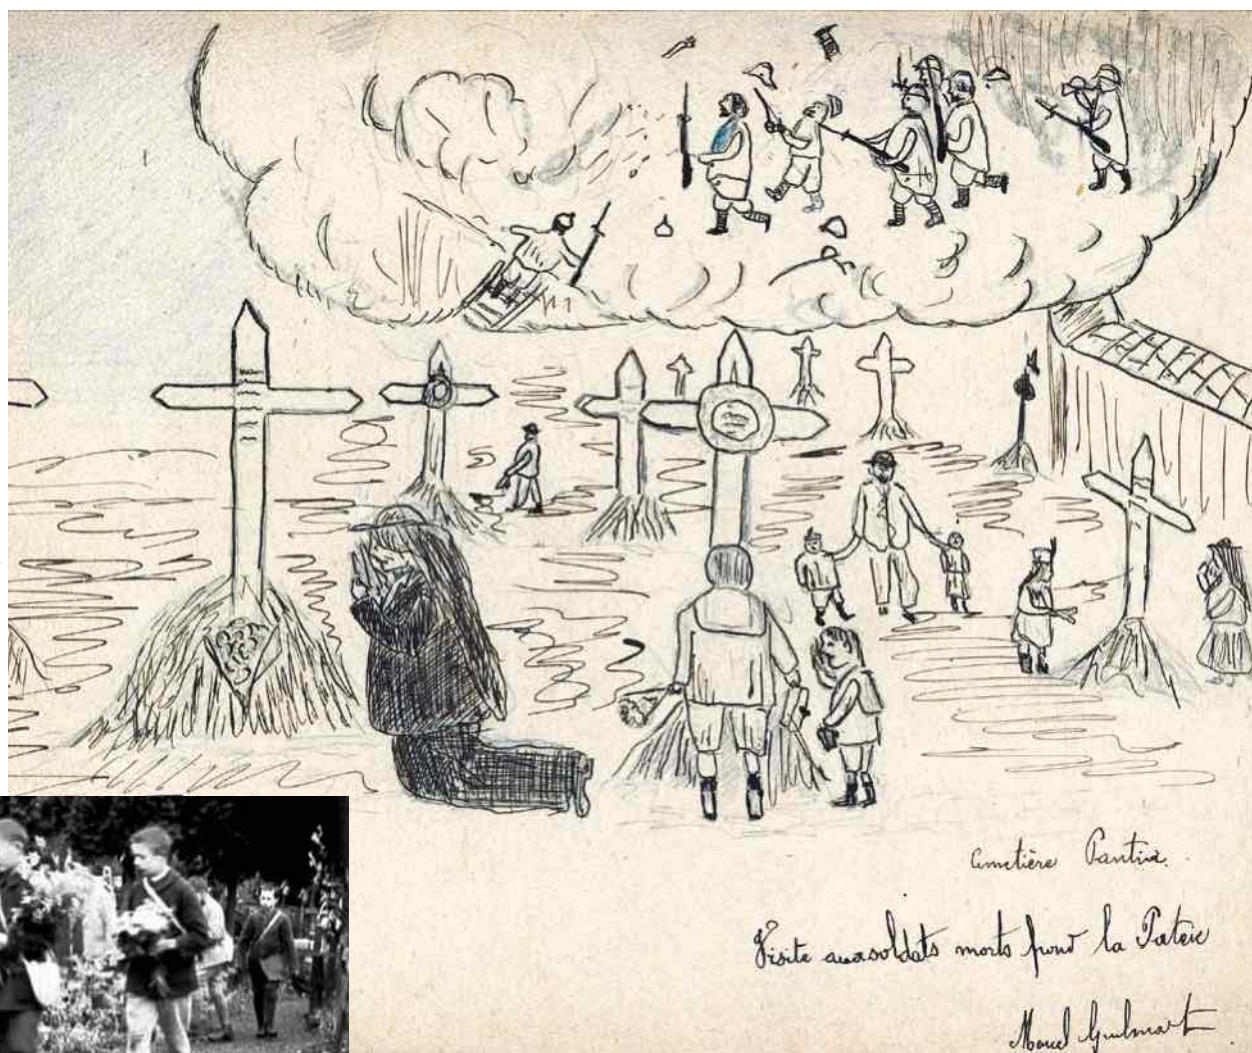 Cimetière Pantin.
Visite aux soldats morts pour la Patrie
Marcel Guilmart